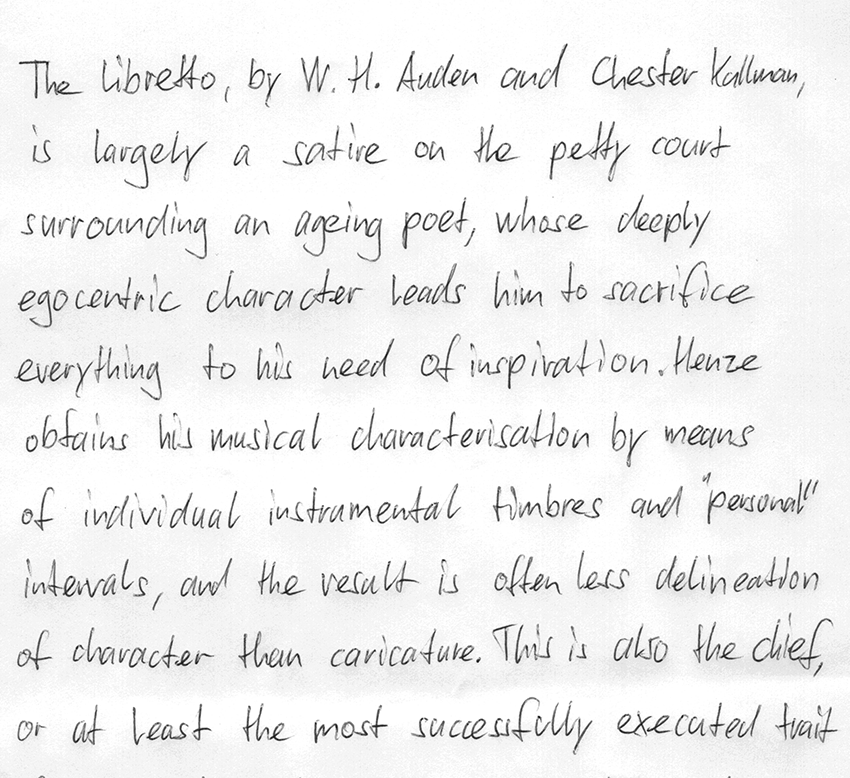 The libretto, by W. H. Auden and Chester Kallman,
is largely a satire on the petty court
surrounding an ageing poet, whose deeply
egocentric character leads him to sacrifice
everything to his need of inspiration. Henze
obtains his musical characterisation by means
of individual instrumental timbres and "personal"
intervals, and the result is often less delineation
of character than caricature. This is also the chief,
or at least the most successfully executed trait